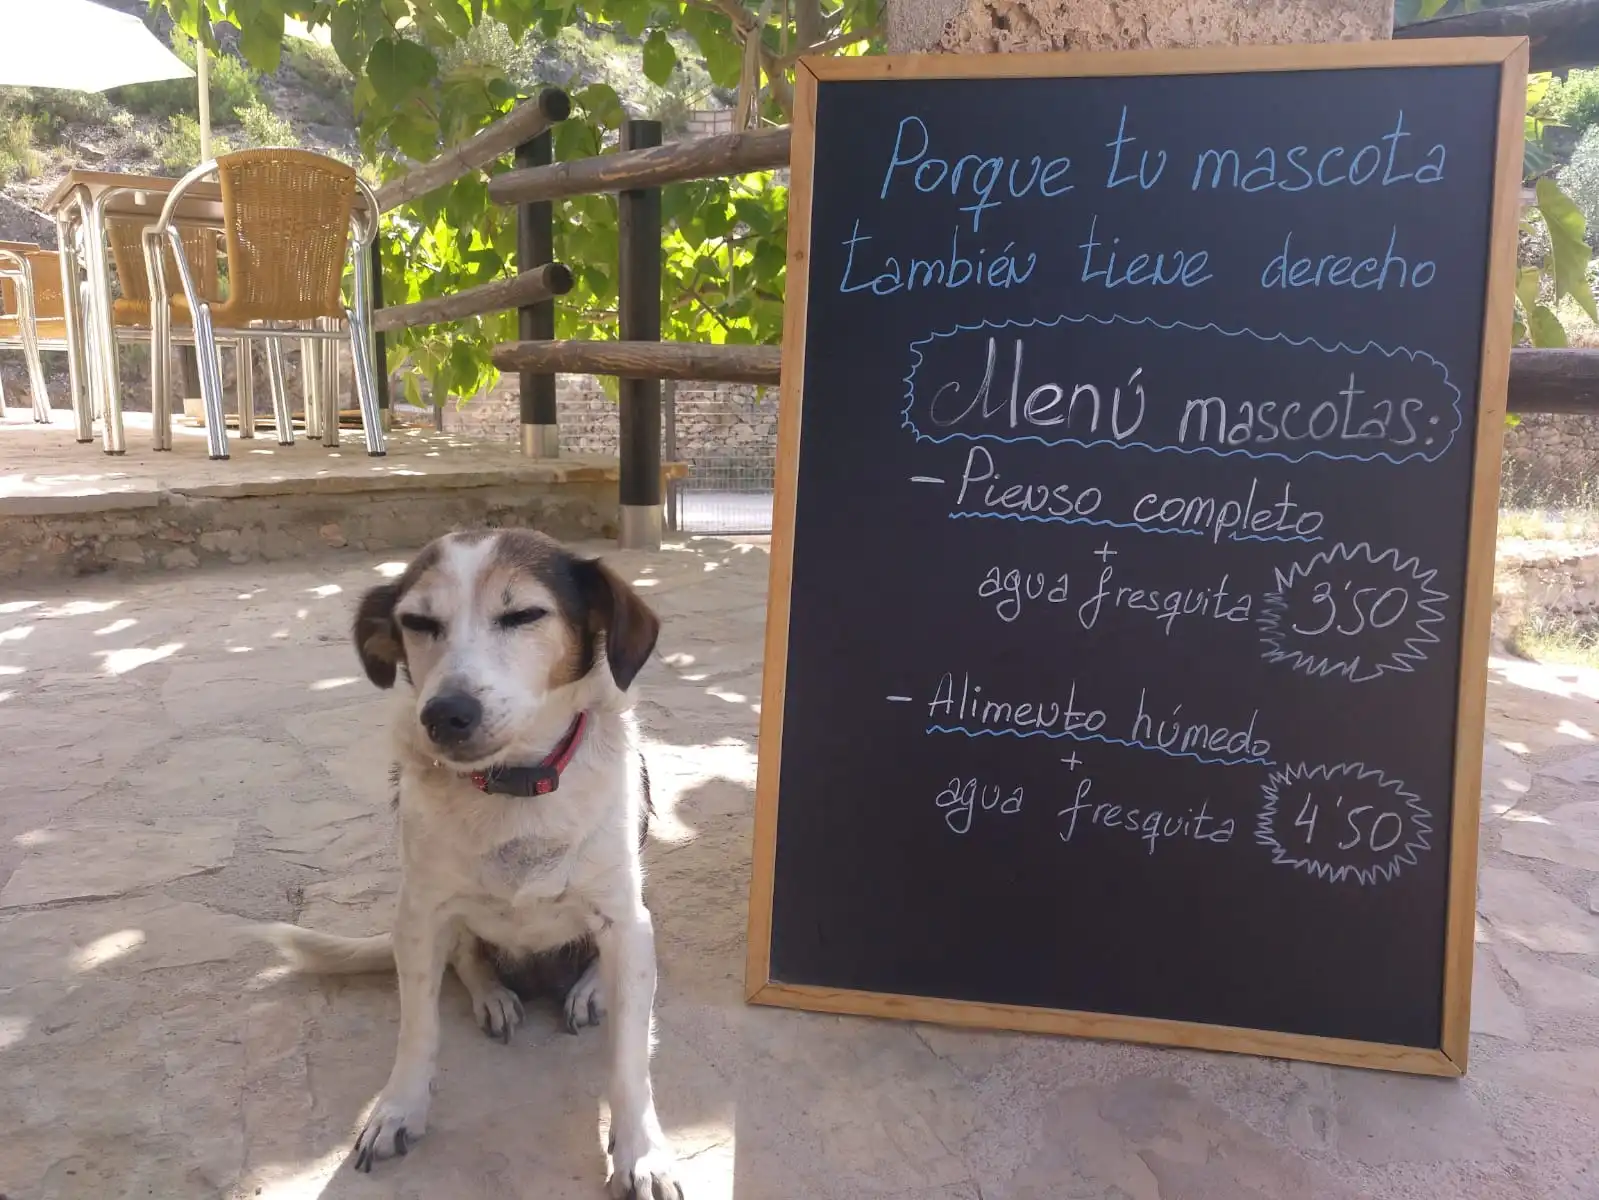 Porque tu mascota
también tiene derecho
Menú mascotas:
- Pienso completo
+
agua fresquita 3'50
- Alimento húmedo
+
agua fresquita 4'50